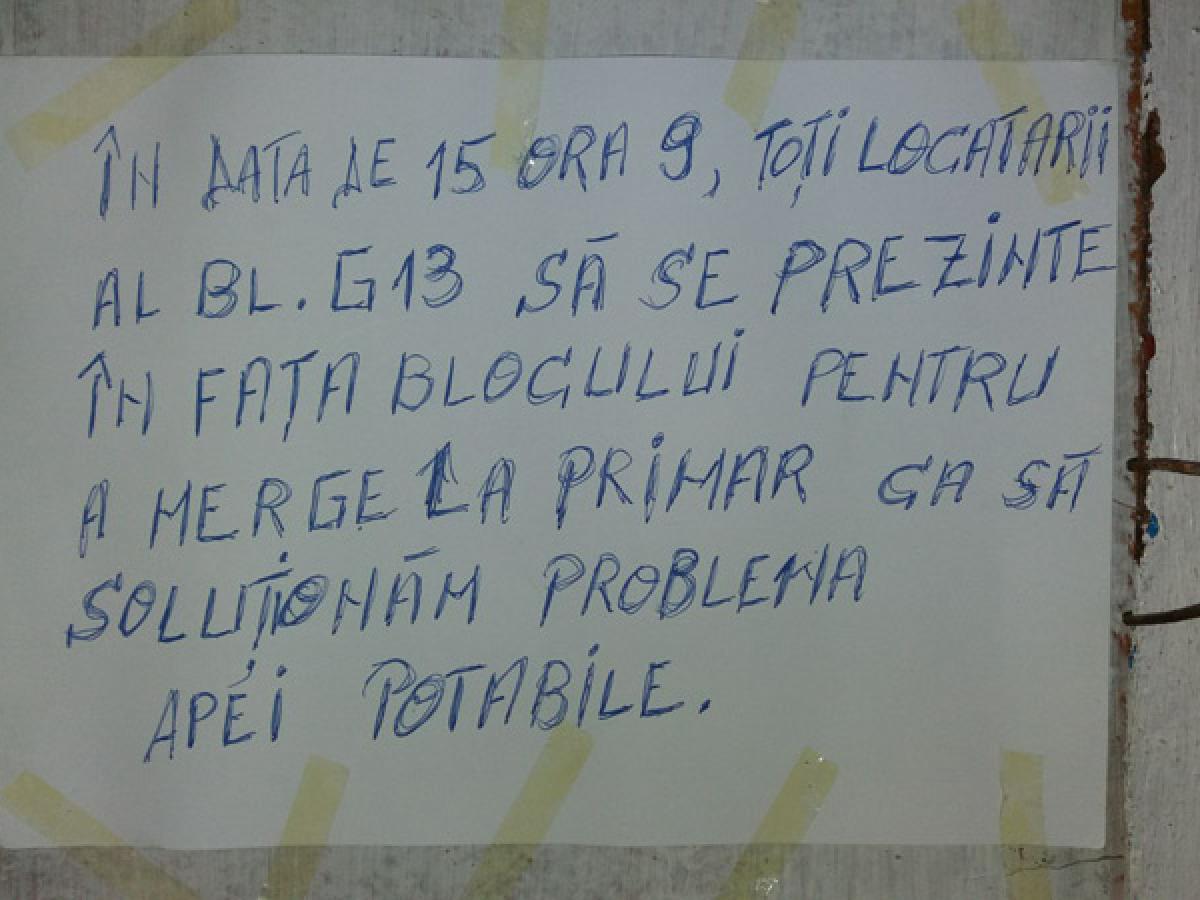 ÎN DATA DE 15 ORA 9, TOȚI LOCATARII
AL BL. G13 SĂ SE PREZINTE
ÎN FAȚA BLOCULUI PENTRU
A MERGE LA PRIMAR CA SĂ
SOLUȚIONĂM PROBLEMA
APEI POTABILE.